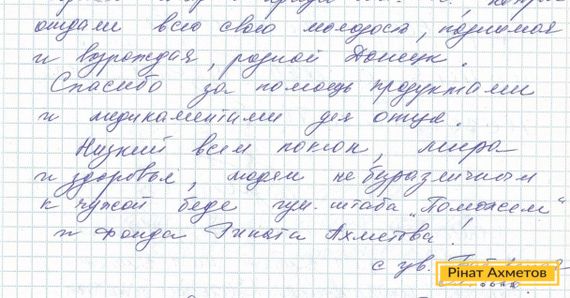 отдали всю свою молодость, поднимая
и возрождая, родной Донецк.
Спасибо за помощь продуктами
и медикаментами для отца.
Низкий всем поклон, мира
и здоровья, людям небезразличным
к чужой беде гум. штаба „Поможем“
и Фонда Рината Ахметова!
с ув.
Рінат Ахметов
ФОНД